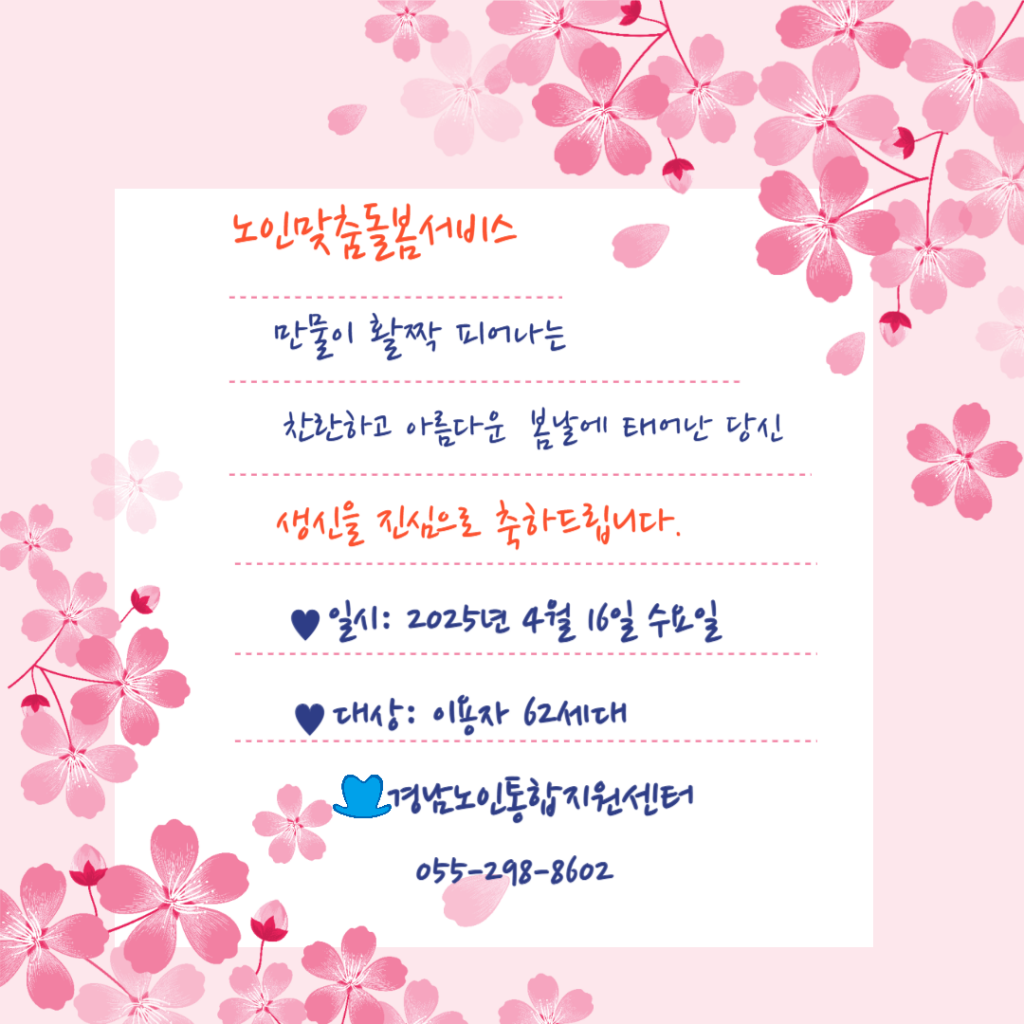 노인맞춤돌봄서비스
만물이 활짝 피어나는
찬란하고 아름다운 봄날에 태어난 당신
생신을 진심으로 축하드립니다.
♥일시: 2025년 4월 16일 수요일
♥대상: 이용자 62세대
경남노인통합지원센터
055-298-8602